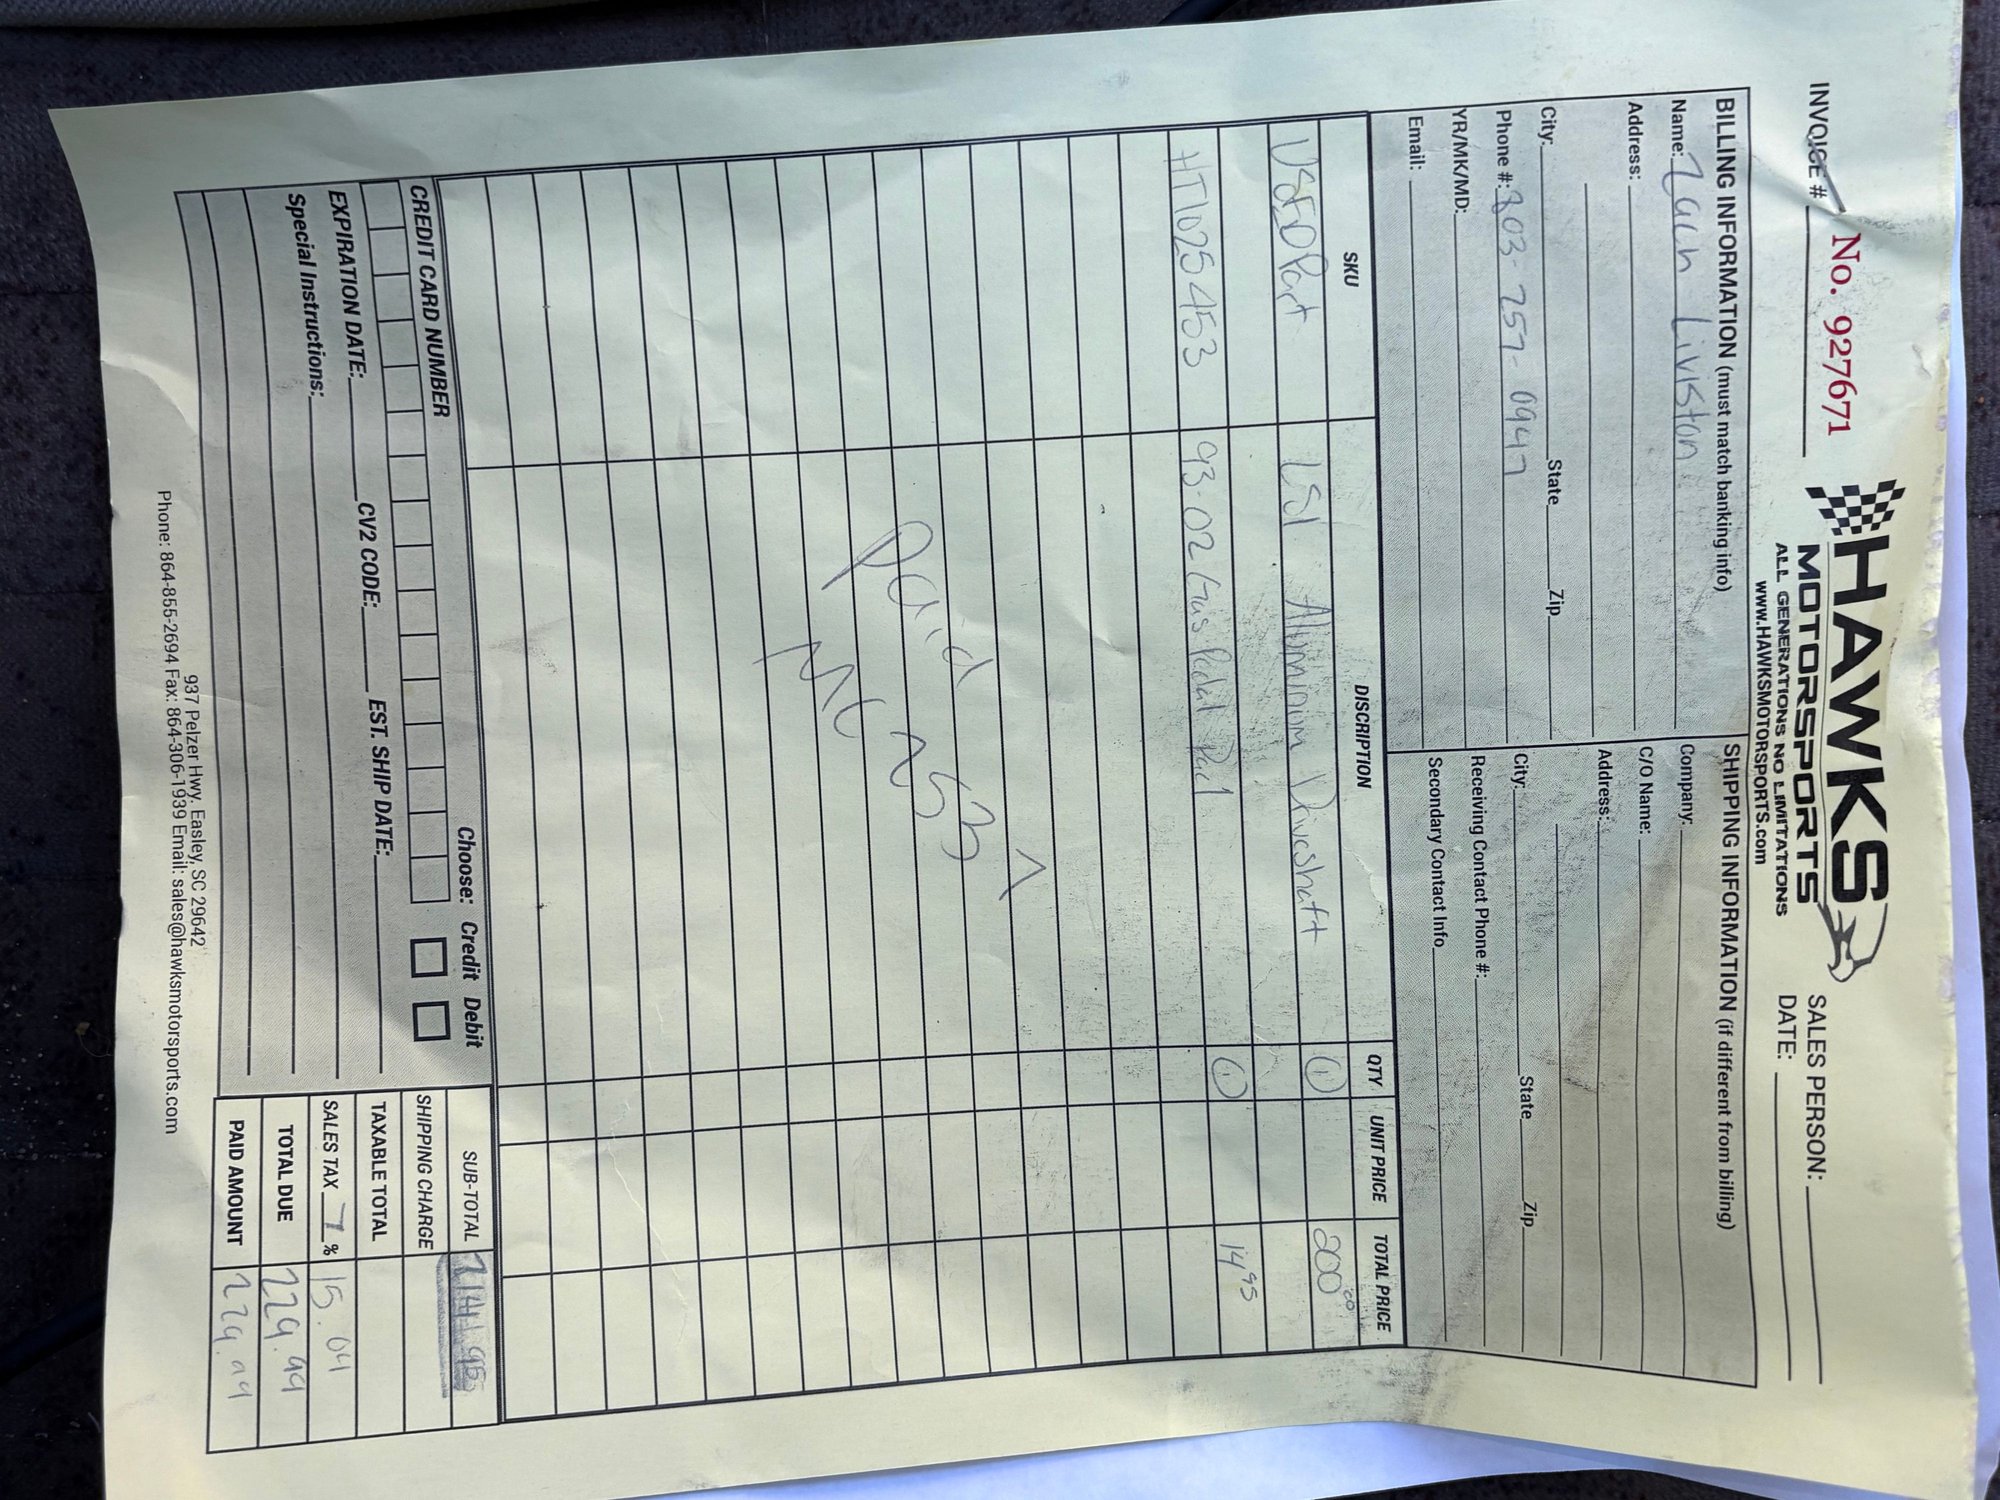 INVOICE # No. 927671
HAWKS
MOTORSPORTS
ALL GENERATIONS NO LIMITATIONS
www.HAWKSMOTORSPORTS.com
SALES PERSON:
DATE:
BILLING INFORMATION (must match banking info)
Name: Zach Liviston
Address:
City: State Zip
Phone #: 803-257-0947
YR/MK/MD:
Email:
SHIPPING INFORMATION (if different from billing)
Company:
C/O Name:
Address:
City: State Zip
Receiving Contact Phone #:
Secondary Contact Info
SKU DISCRIPTION QTY UNIT PRICE TOTAL PRICE
USED Part LS1 Aluminium Driveshaft 1 200.00
HT1025453 93-02 Gas Pedal Pad 1 14.95
Paid
MC 2533
CREDIT CARD NUMBER Choose: Credit Debit
EXPIRATION DATE: CV2 CODE: EST. SHIP DATE:
Special Instructions:
SUB-TOTAL 214.95
SHIPPING CHARGE
TAXABLE TOTAL
SALES TAX 7 % 15.04
TOTAL DUE 229.99
PAID AMOUNT 229.99
937 Pelzer Hwy. Easley, SC 29642
Phone: 864-855-2694 Fax: 864-306-1939 Email: sales@hawksmotorsports.com